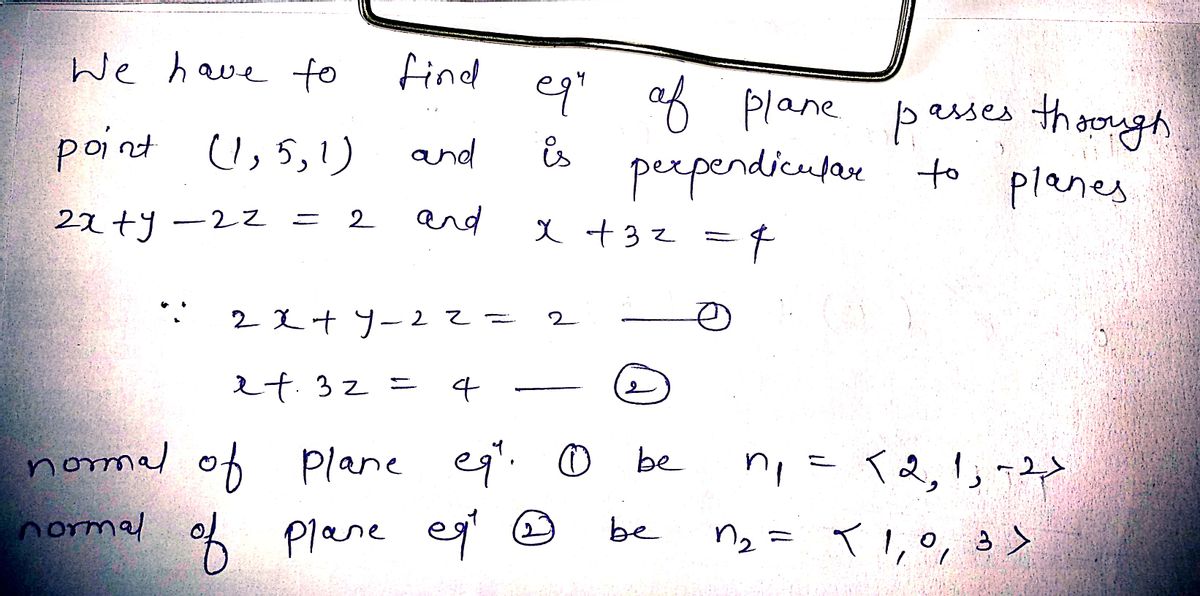 We have to find eqⁿ of plane passes through
point (1, 5, 1) and is perpendicular to planes
2x + y - 2z = 2 and x + 3z = 4
∵ 2x + y - 2z = 2 — ①
x + 3z = 4 — ②
normal of plane eqⁿ. ① be n₁ = <2, 1, -2>
normal of plane eqⁿ ② be n₂ = <1, 0, 3>